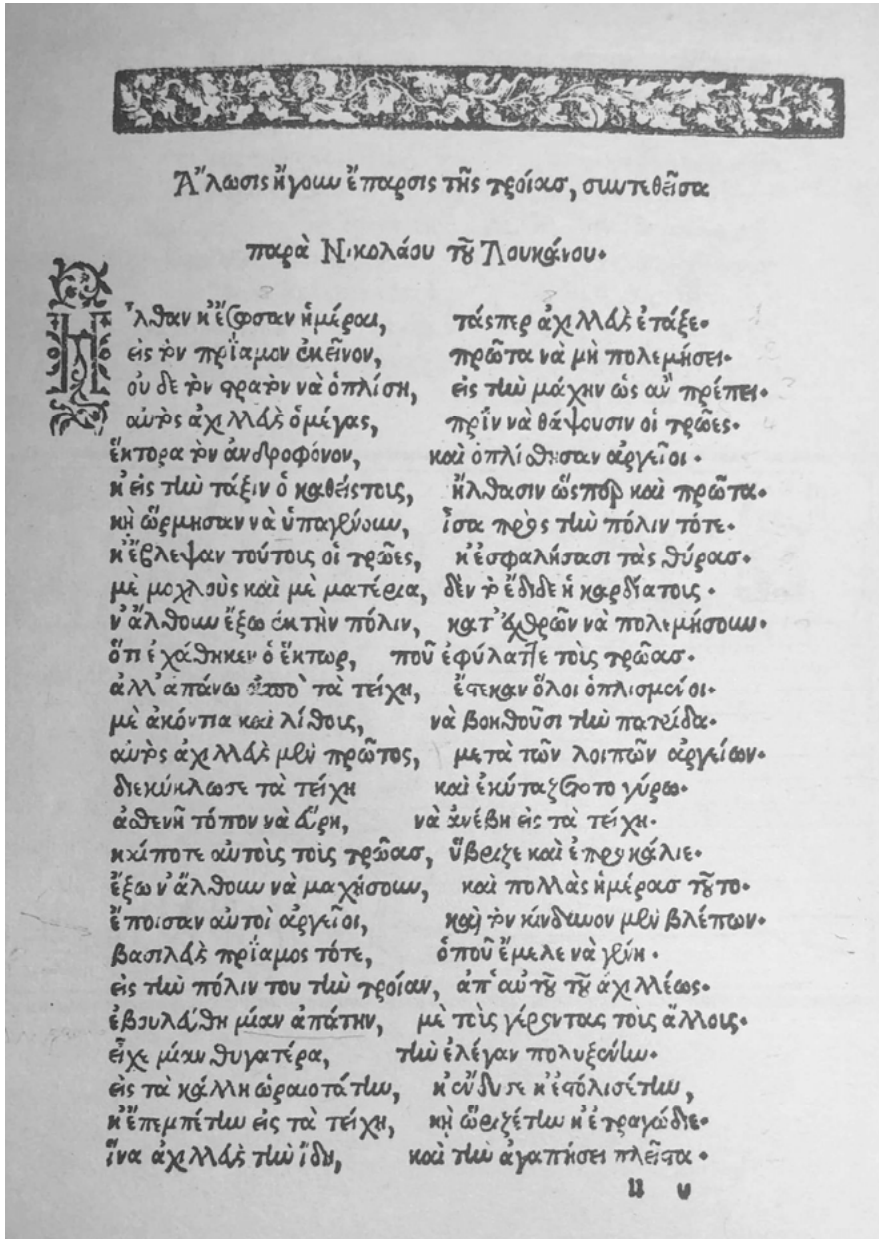 Ἅλωσις ἤγουν ἔπαρσις τῆς τροίας, συντεθεῖσα
παρὰ Νικολάου τοῦ Λουκάνου.
Ἦλθαν κ' ἔσωσαν ἡμέραι, τάςπερ ἀχιλλεὺς ἐτάξε.
εἰς τὸν πρΐαμον ἐκεῖνον, πρῶτα νὰ μὴ πολεμήσει.
οὐ δὲ τὸν στρατὸν νὰ ὁπλίση, εἰς τὴν μάχην ὡς ἂν πρέπει.
αὐτὸς ἀχιλλεὺς ὁ μέγας, πρΐν νὰ θάψουσιν οἱ τρῶες.
ἕκτορα τὸν ἀνδροφόνον, καὶ ὁπλίσθησαν ἀργεῖοι.
κ' εἰς τὴν τάξιν ὁ καθείςτους, ἤλθασιν ὥςπερ καὶ πρῶτα.
κὴ ὥρμησαν νὰ ὑπαγένουν, ἴσα πρὸς τὴν πόλιν τότε.
κ' ἔβλεψαν τούτοις οἱ τρῶες, κ' ἐσφαλήσασι τὰς θύρας.
μὲ μοχλοὺς καὶ μὲ ματέρια, δὲν τὸ ἔδιδε ἡ καρδίατους.
ν' ἄλθουν ἔξω ἐκ τὴν πόλιν, κατ' ἐχθρῶν νὰ πολεμήσουν.
ὅτι ἐχάθηκεν ὁ ἕκτωρ, ποῦ ἐφύλαττε τοὺς τρῶας.
ἀλλ' ἀπάνω ἀπὸ τὰ τείχη, ἔστεκαν ὅλοι ὁπλισμένοι.
μὲ ἀκόντια καὶ λίθοις, νὰ βοηθοῦσι τὴν πατρίδα.
αὐτὸς ἀχιλλεὺς μὲν πρῶτος, μετὰ τῶν λοιπῶν ἀργείων.
διεκύκλωσε τὰ τείχη καὶ ἐκύταζε τὸ γύρω.
ἀσθενῆ τόπον νὰ εὕρη, νὰ ἀνέβη εἰς τὰ τείχη.
κ' κάποτε αὐτοὺς τοὺς τρῶας, ὕβριζε καὶ ἐπροκάλιε.
ἔξω ν' ἄλθουν νὰ μαχήσουν, καὶ πολλὰς ἡμέρας τοῦτο.
ἔποισαν αὐτοὶ ἀργεῖοι, καὶ τὸν κίνδυνον μὲν βλέπων.
βασιλεὺς πρΐαμος τότε, ὁποῦ ἔμελε νὰ γένη.
εἰς τὴν πόλιν του τὴν τροίαν, ἀπ' αὐτοῦ τοῦ ἀχιλλέως.
ἐβουλεύθη μίαν ἀπάτην, μὲ τοὺς γέροντας τοὺς ἄλλους.
εἶχε μίαν θυγατέρα, τὴν ἐλέγαν πολυξένην.
εἰς τὰ κάλλη ὡραιοτάτην, κ' ἔνδυσε κ' ἐστόλισέτην,
κ' ἔπεμπέτην εἰς τὰ τείχη, κὴ ὥριζέτην κ' ἐτραγώδιε.
ἵνα ἀχιλλεὺς τὴν ἴδη, καὶ τὴν ἀγαπήσει πλεῖστα.